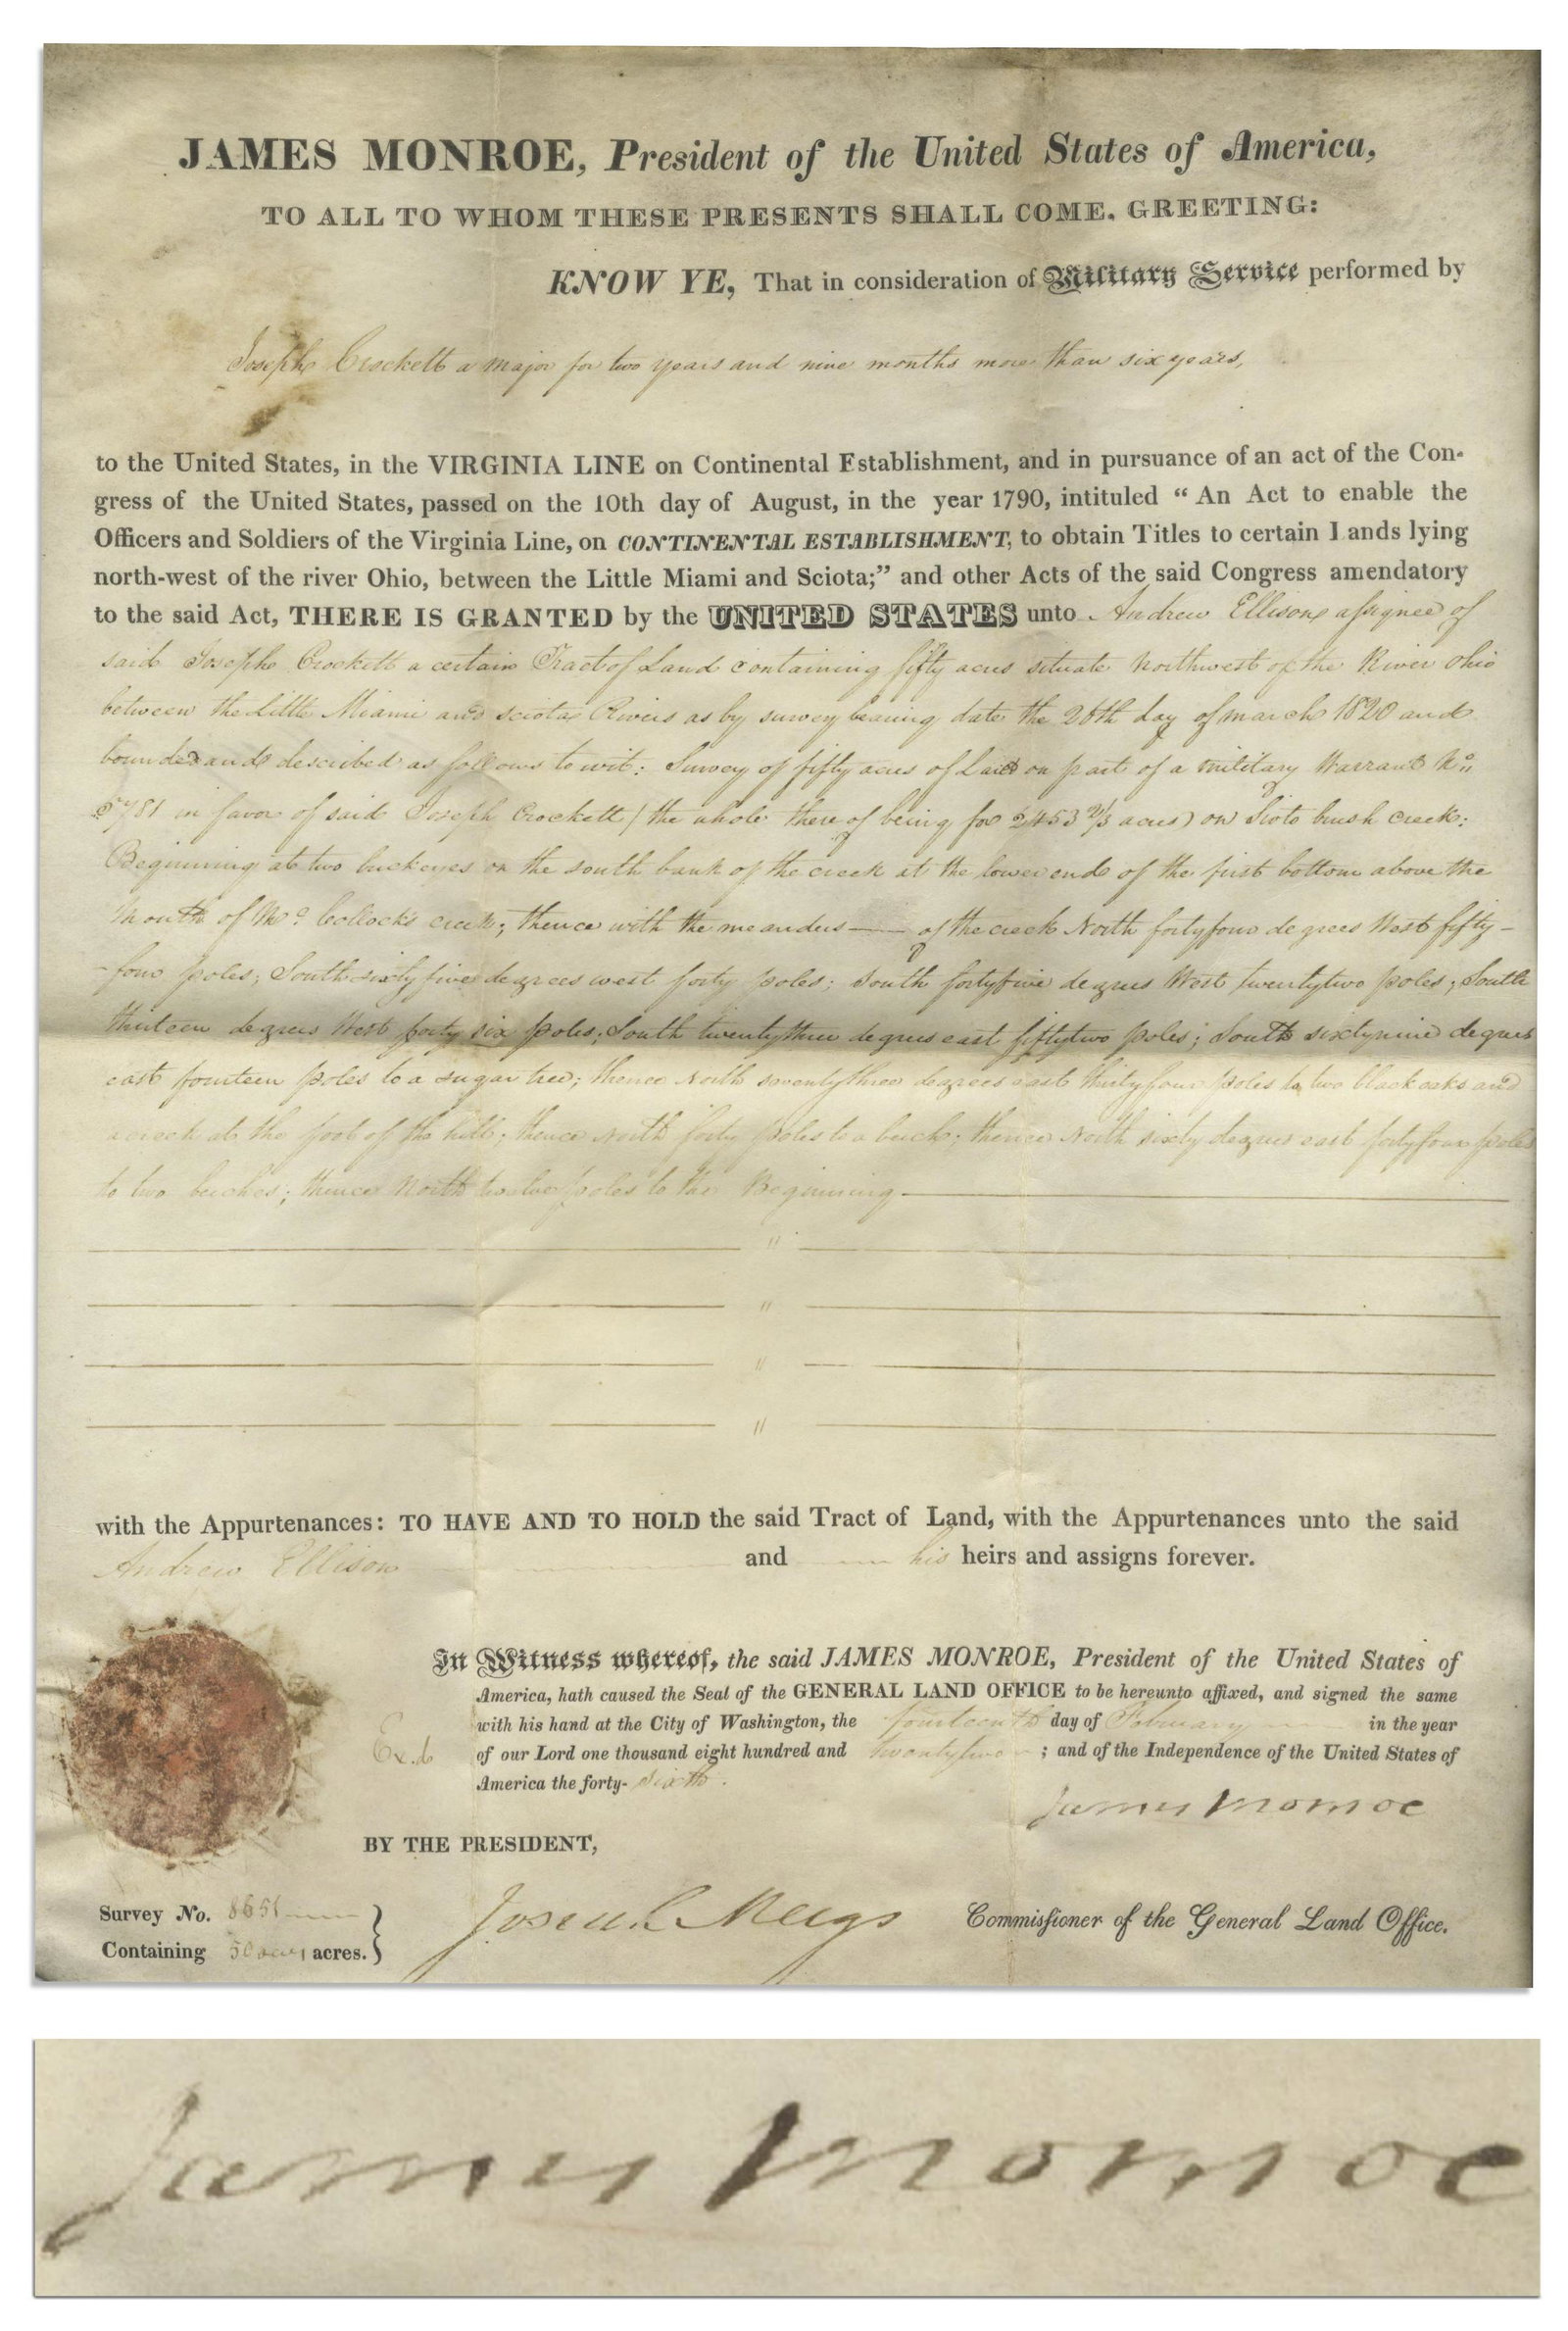 JAMES MONROE, President of the United States of America,
TO ALL TO WHOM THESE PRESENTS SHALL COME, GREETING:
KNOW YE, That in consideration of Military Service performed by
Joseph Crockett a major for two years and nine months more than six years,
to the United States, in the VIRGINIA LINE on Continental Establishment, and in pursuance of an act of the Con-
gress of the United States, passed on the 10th day of August, in the year 1790, intituled “ An Act to enable the
Officers and Soldiers of the Virginia Line, on CONTINENTAL ESTABLISHMENT, to obtain Titles to certain Lands lying
north-west of the river Ohio, between the Little Miami and Sciota;” and other Acts of the said Congress amendatory
to the said Act, THERE IS GRANTED by the UNITED STATES unto Andrew Ellison assignee of
said Joseph Crockett a certain Tract of Land containing fifty acres situate Northwest of the River Ohio
between the Little Miami and Sciota Rivers as by survey bearing date the 26th day of march 1820 and
bounded and described as follows to wit: Survey of fifty acres of Land on part of a military Warrant No.
5781 in favor of said Joseph Crockett (the whole there of being for 2453 2/3 acres) on Sioto brush creek:
Beginning at two buckeyes on the south bank of the creek at the lower end of the first bottom above the
Mouth of Mc Collocks creek; thence with the meanders — of the creek North fortyfour degrees West fifty-
-four poles; South sixtyfive degrees west forty poles; South fortyfive degrees West twentytwo poles; South
thirteen degrees West forty six poles; South twentythree degrees east fiftytwo poles; South sixtynine degrees
east fourteen poles to a sugar tree; thence North seventythree degrees east thirtyfour poles to two black oaks and
a at the foot of the hill; thence North forty poles to a beech; thence North sixty degrees east fortyfour poles
to two beeches; thence North twelve poles to the Beginning —
"
"
"
"
with the Appurtenances: TO HAVE AND TO HOLD the said Tract of Land, with the Appurtenances unto the said
Andrew Ellison and his heirs and assigns forever.
In Witness whereof, the said JAMES MONROE, President of the United States of
America, hath caused the Seal of the GENERAL LAND OFFICE to be hereunto affixed, and signed the same
with his hand at the City of Washington, the fourteenth day of February in the year
Ex.d of our Lord one thousand eight hundred and twentytwo ; and of the Independence of the United States of
America the forty-sixth.
James Monroe
BY THE PRESIDENT,
Josiah Meigs Commissioner of the General Land Office.
Survey No. 8651
Containing 50 acres.
James Monroe